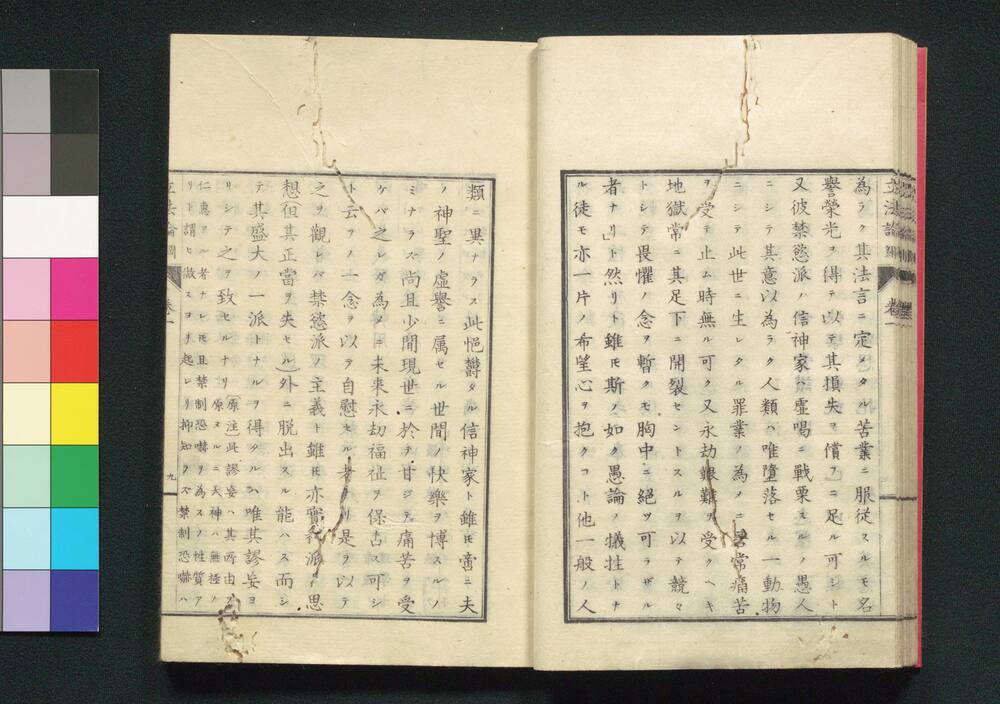 立法論綱 卷一
為ラク其法言ニ定メタル苦業ニ服従スルモ名
譽榮光ヲ得テ以テ其損失ヲ償フニ足ル可シト
又彼禁慾派ハ信神家ハ虚喝ニ戰栗スルノ愚人
ニシテ其意以為ラク人類ハ唯墮落セル一動物
ニシテ此世ニ生レタル罪業ノ為メニ
常痛苦
ヲ受テ止ム時無ル可ク又永劫艱難ヲ受クヘキ
地獄常ニ其足下ニ開裂セントスルヲ以テ競々
トシテ畏懼ノ念ヲ暫クモ胸中ニ絕ツ可ラザル
者ナリト然リト雖モ斯ノ如ク愚論ノ犠牲トナ
ル徒モ亦一片ノ希望心ヲ抱クコト他一般ノ人
類ニ異ナラス此悒欝タル信神家ト雖モ啻ニ夫
ノ神聖ノ虚譽ニ属セル世間ノ快樂ヲ博スルノ
ミナラス尚且少間現世ニ於テ甘ジテ痛苦ヲ受
ケバ之レガ為メニ未来永劫福祉ヲ保ス可シ
ト云フノ一念ヲ以テ自慰セル者ナリ是ヲ以テ
之ヲ觀レバ禁慾派ノ主義ト雖モ亦實利派ノ思
想(但其正當ヲ失セル)外ニ脱出スル能ハス而シ
テ其盛大ノ一派トナルヲ得タルハ唯其謬妄ヨ
リシテ之ヲ致セルナリ
原注此謬妄ハ其所由ヲ
原ヌルニ天神ハ無極ノ
仁惠アル者ナレモ且禁制恐嚇ヲ為スノ性質ア
リト謂ヒ做スヨリ起レリ抑知ラス禁制恐嚇ハ
立法論綱 卷一 九